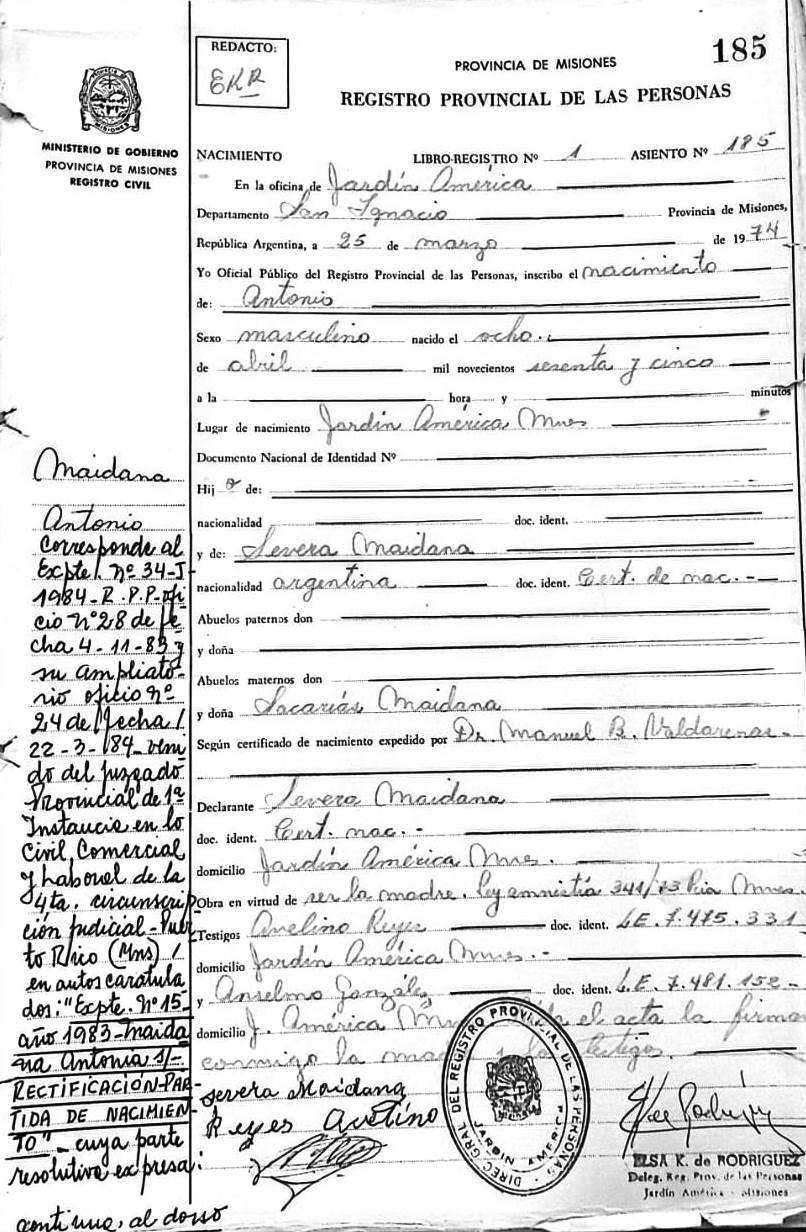 185
REDACTO:
EKR
PROVINCIA DE MISIONES
REGISTRO PROVINCIAL DE LAS PERSONAS
MISIONES
MINISTERIO DE GOBIERNO
PROVINCIA DE MISIONES
REGISTRO CIVIL
NACIMIENTO LIBRO-REGISTRO Nº 1 ASIENTO Nº 185
En la oficina de Jardín América
Departamento San Ignacio Provincia de Misiones,
República Argentina, a 25 de marzo de 1974
Yo Oficial Público del Registro Provincial de las Personas, inscribo el nacimiento
de: Antonio
Sexo masculino nacido el ocho.-
de abril mil novecientos sesenta y cinco
a la hora y minutos
Lugar de nacimiento Jardín América Mnes
Documento Nacional de Identidad Nº
Hij o de:
nacionalidad doc. ident.
y de: Severa Maidana
nacionalidad argentina doc. ident. Cert. de nac. -
Abuelos paternos don
y doña
Abuelos maternos don
y doña Sacarías Maidana
Según certificado de nacimiento expedido por Dr. Manuel B. Valdarenas -
Declarante Severa Maidana
doc. ident. Cert. nac. -
domicilio Jardín América Mnes.
Obra en virtud de ser la madre. Ley amnistía 341/73 Pcia Mnes.
Testigos Avelino Reyes doc. ident. L.E. 7.475.331
domicilio Jardín América Mnes. -
y Anselmo González doc. ident. L.E. 7.481.152 -
domicilio J. América el acta la firman
conmigo la testigos.
Severa Maidana
Reyes Avelino
DIREC. GRAL DEL REGISTRO PROVINCIAL DE LAS PERSONAS
JARDIN AMERICA
ELSA K. de RODRIGUEZ
Deleg. Reg. Prov. de las Personas
Jardín América - Misiones
Maidana
Antonio
Corresponde al
Expte. Nº 34-J
1984-R.P.P-ofi
cio Nº 28 de fe
cha 4-11-83 y
su ampliato-
rio oficio Nº
24 de fecha /
22-3-84- veni
do del juzgado
Provincial de 1ª
Instancia en lo
Civil, Comercial
y Laboral de la
4ta. circunscrip
ción judicial-Puer
to Rico (Mns) /
en autos caratula
dos: "Expte. Nº 15-
año 1983-Maida
na Antonia s/-
RECTIFICACIÓN-PAR-
TIDA DE NACIMIEN-
TO"- cuya parte
resolutiva expresa:
continua, al dorso